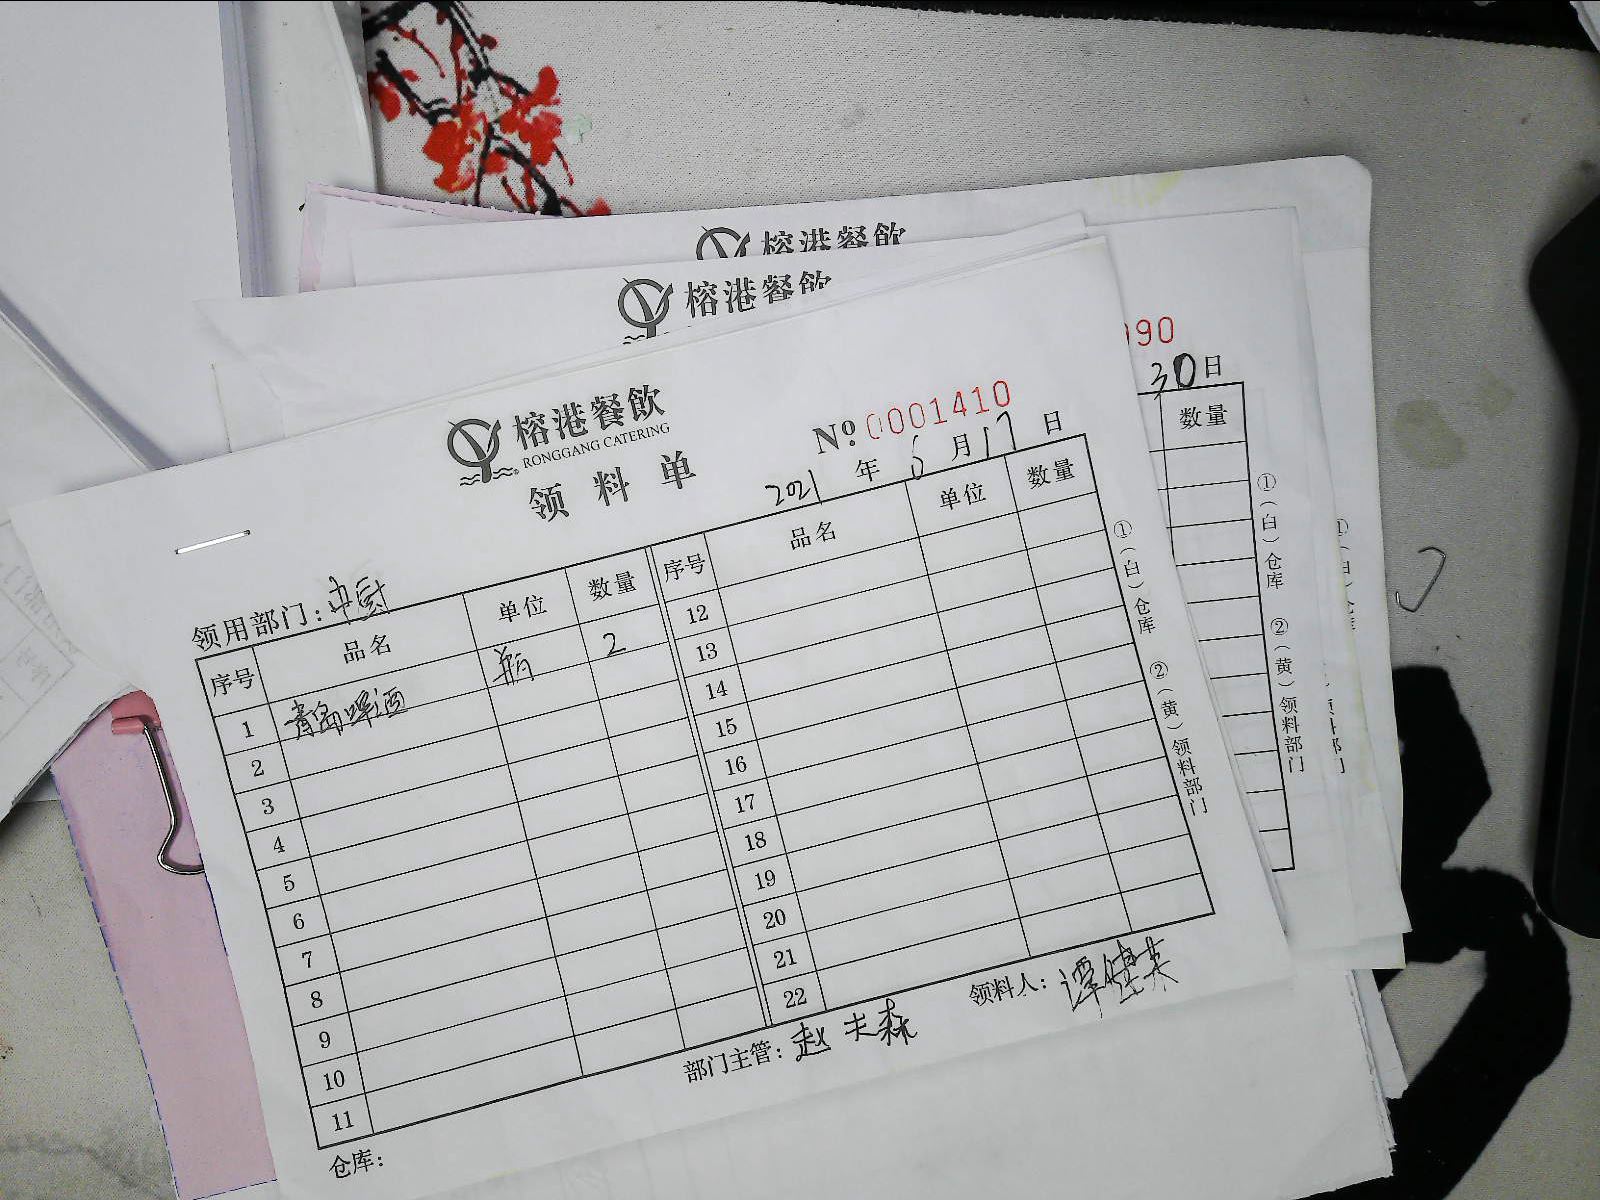 榕港餐飲
榕港餐飲
990
30日
数量
榕港餐飲
RONGGANG CATERING
领料单
№ 0001410
2021年5月17日
领用部门:中厨
序号 品名 单位 数量 序号 品名 单位 数量
1 青岛啤酒 瓶 2 12
2 13
3 14
4 15
5 16
6 17
7 18
8 19
9 20
10 21
11 22
仓库: 部门主管:赵 森 领料人:谭
①(白)仓库 ②(黄)领料部门
①(白)仓库 ②(黄)领料部门